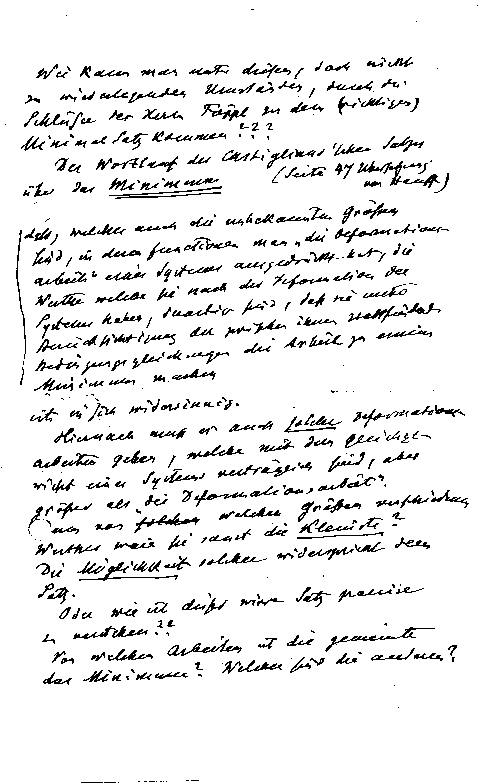 Wie kann man unter diesen, doch nicht
zu widerlegenden Umständen, durch die
Schlüsse des Herrn Föppl zu dem (richtigen)
Minimal Satz kommen???
Der Wortlaut des Castigliano'schen Satzes
über das Minimum (Seite 47 Übersetzung
von Hauff)
daß, welches auch die unbekannten Größen
sind, in deren Functionen man "die Deformations
arbeit" eines Systemes ausgedrückt hat, die
Werthe welche sie nach der Deformation des
Systemes haben, derartig sind, daß sie unter
Berücksichtigung der zwischen ihnen stattfindenden
Bedingungsgleichungen die Arbeit zu einem
Minimum machen
ist in sich widersinnig.
Hiernach muß es auch solche Deformations
arbeiten geben, welche mit dem Gleichge-
wicht eines Systemes verträglich sind, aber
größer als "die Deformationsarbeit".
welchen Größen verschiedenen
Werthes wäre sie sonst die Kleinste?
Die Möglichkeit solcher widerspricht dem
Satz.
Oder wie ist dieser Satz
zu verstehen??
Von welchen Arbeiten ist die gemeinte
das Minimum? Welches sind die anderen?